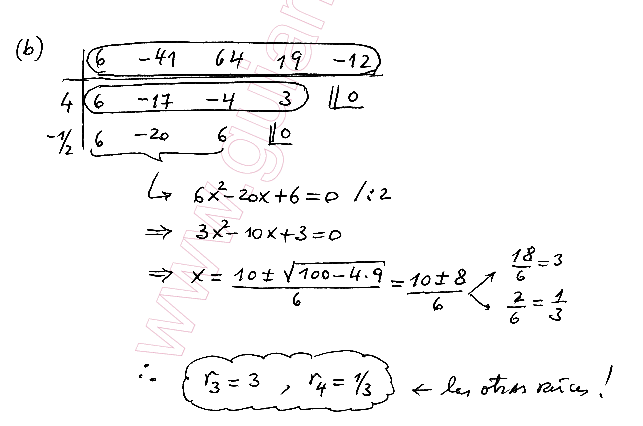 (b) 6 -41 64 19 -12
4 6 -17 -4 3 || 0
-1/2 6 -20 6 || 0
↳ 6x²-20x+6=0 /:2
⇒ 3x²-10x+3=0
⇒ x = (10 ± √(100-4·9))/6 = (10±8)/6 ↗ 18/6 = 3 ↘ 2/6 = 1/3
∴ r₃ = 3 , r₄ = 1/3 ← las otras raíces!